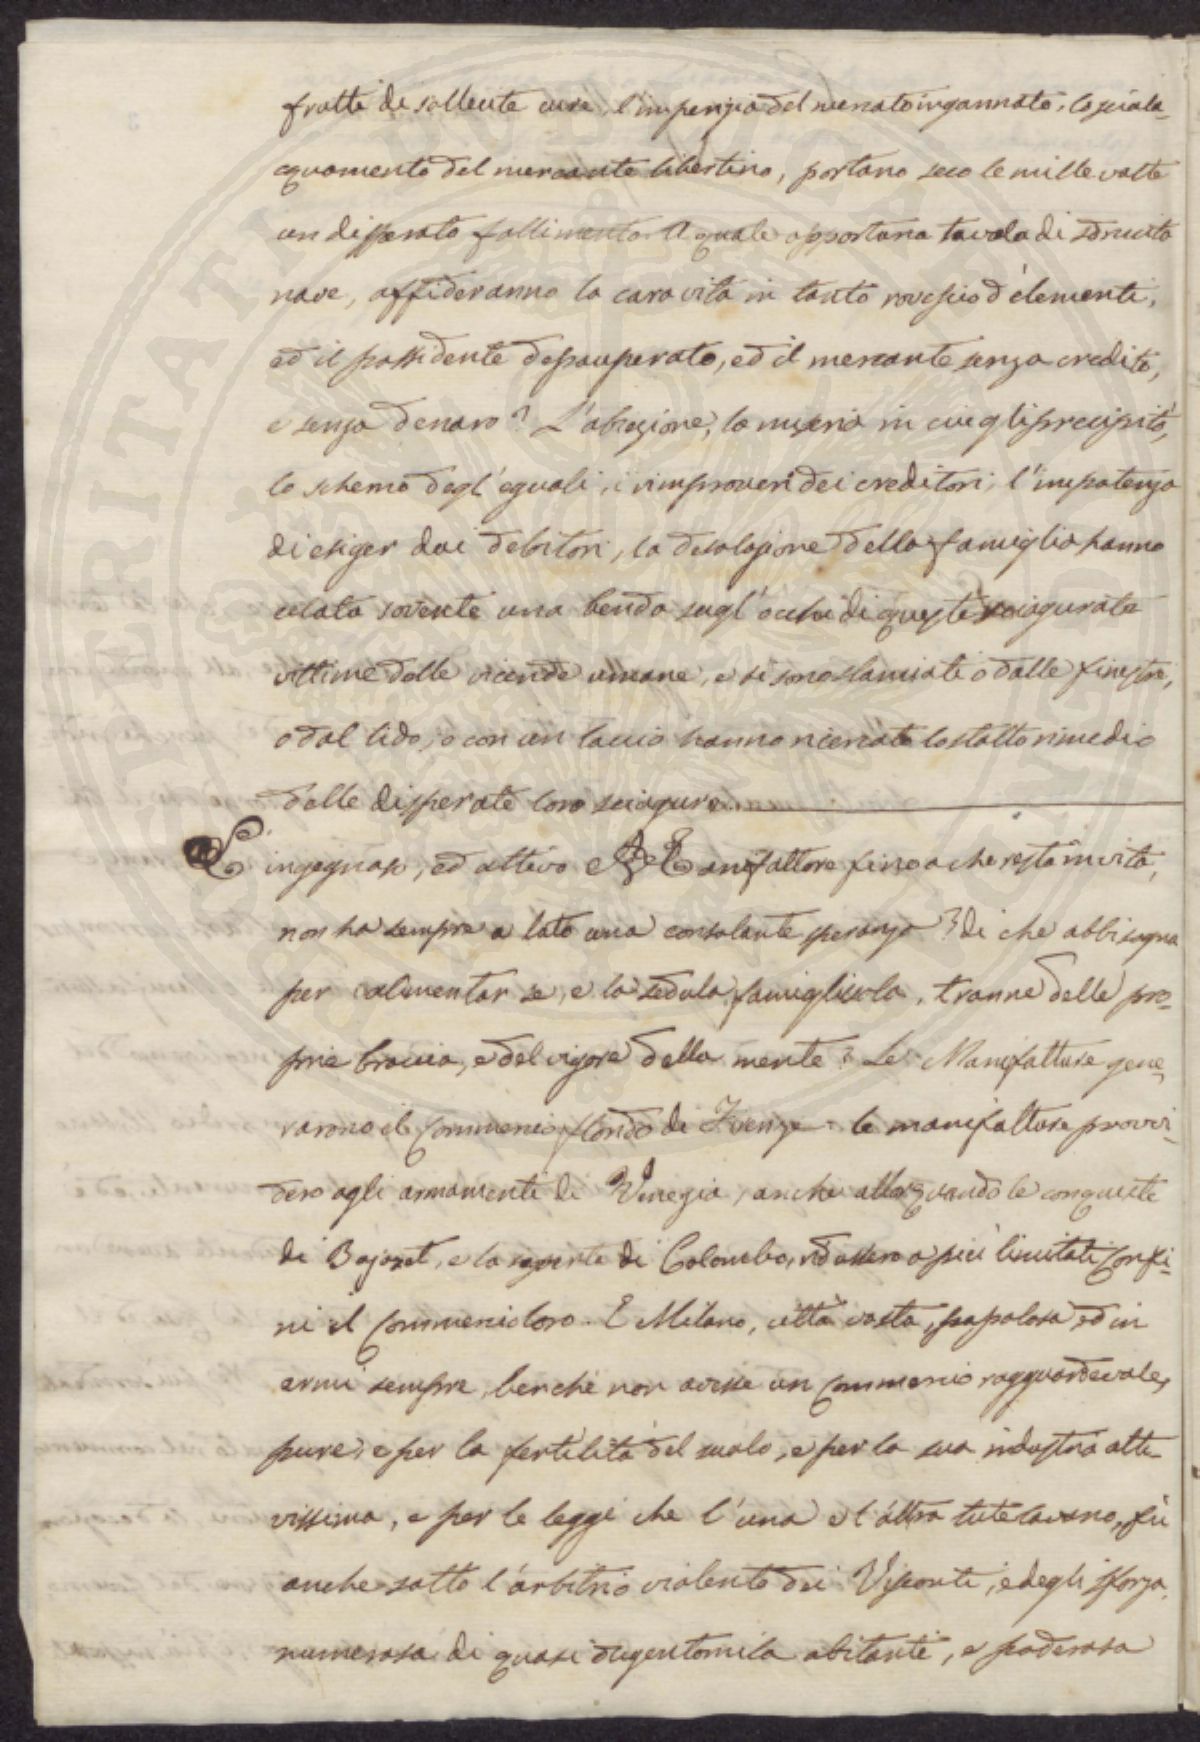 frutti di sollecite cure, l'imperizia del mercato ingannato, lo sciala-
cquamento del mercante libertino, portano seco le mille volte
un disperato fallimento. A quale opportuna tavola di sdrucita
nave, affideranno la cara vita in tanto rovescio d'elementi,
ed il possidente depauperato, ed il mercante senza credito,
e senza denaro? L'abiezione, la miseria in cui egli precipitò,
lo scherno degl'eguali, i rimproveri dei creditori, l'impotenza
di esiger dai debitori, la desolazione della famiglia hanno
celata sovente una benda sugl'occhi di queste sciagurate
vittime delle vicende umane, e si sono slanciati o dalle finestre,
o dal lido, o con un laccio hanno ricercato lo stolto rimedio
delle disperate loro sciagure.
L'ingegnoso, ed attivo Manifattore fino a che resta in vita,
non ha sempre a lato una consolante speranza? di che abbisogna
per alimentar se, e la sedula famigliuola, tranne delle pro-
prie braccia, e del vigore della mente? Le Manifatture gene-
rarono il Commercio florido di Firenze. le manifatture provvi-
dero agli armamenti di Venezia, anche allorquando le conquiste
di Bajazet, e la scoperta di Colombo, ridussero a più limitati confi-
ni il Commercio loro. E Milano, città vasta, popolosa, ed in
armi sempre, benchè non avesse un Commercio ragguardevole,
pure, e per la fertilità del suolo, e per la sua industria atti-
vissima, e per le leggi che l'una e l'altra tutelavano, fù
anche sotto l'arbitrio violento dei Visconti, e degli Sforza,
numerosa di quasi dugentomila abitanti, e poderosa